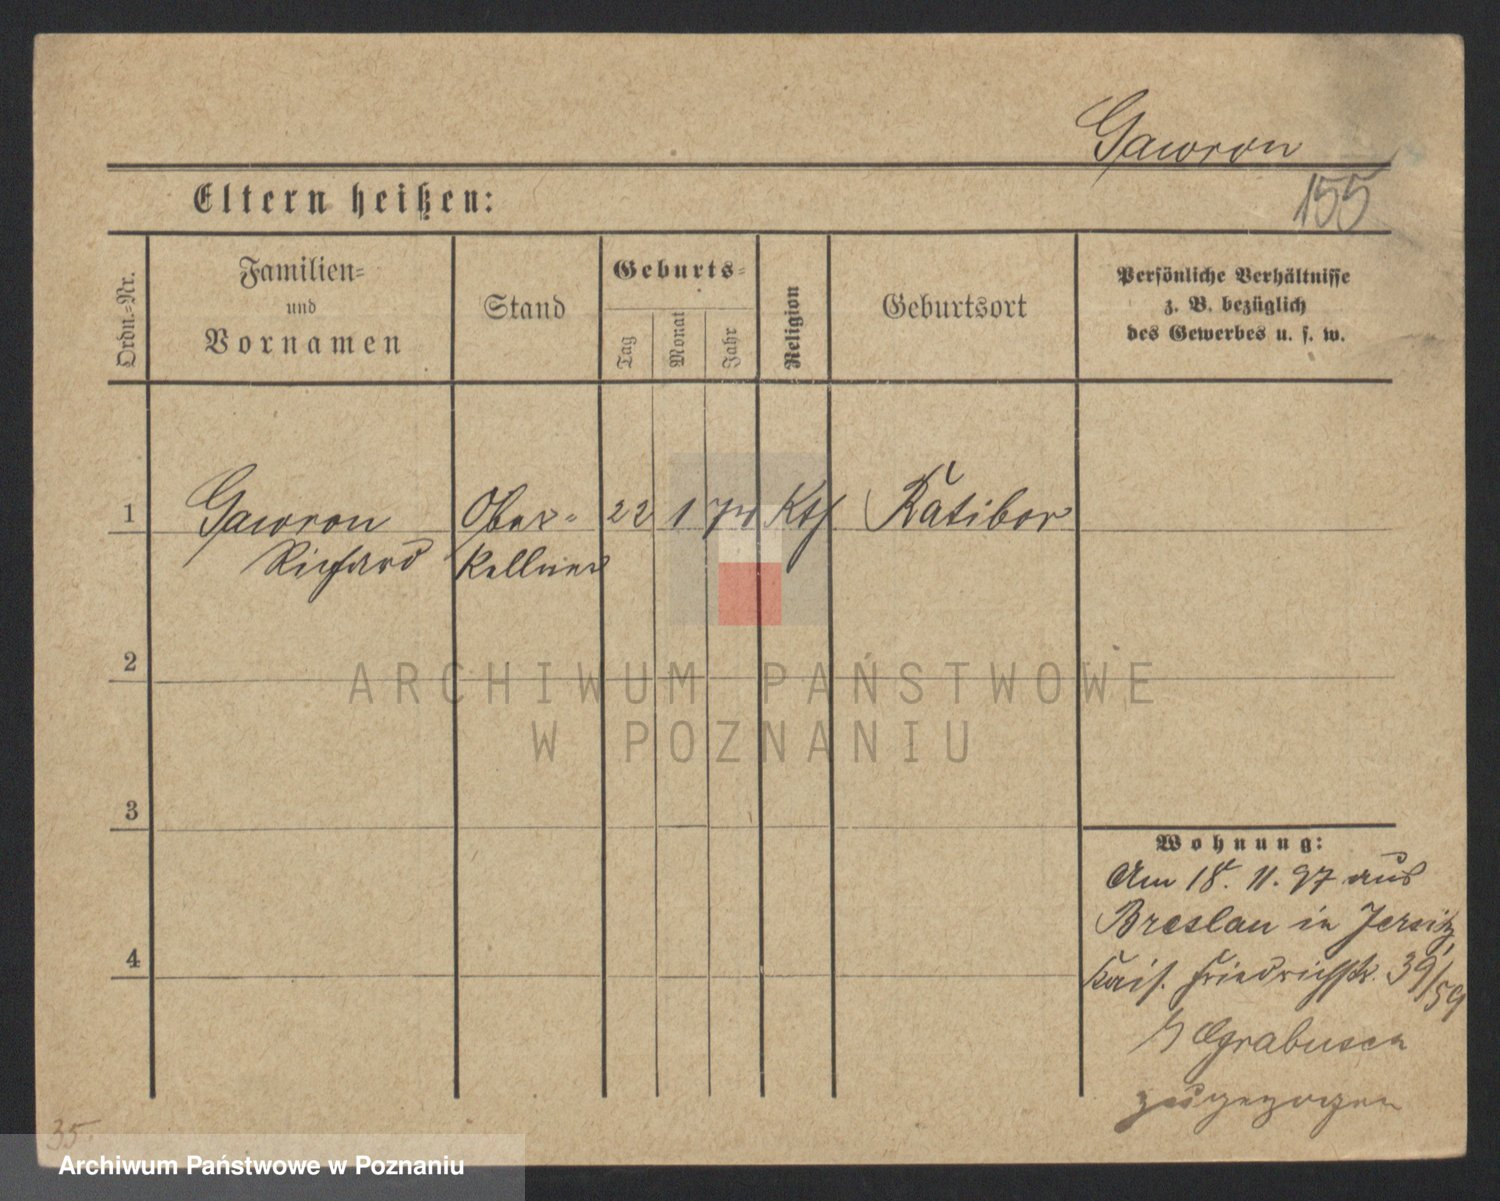 Gawron
155
Eltern heißen:
Ordn.-Nr.
Familien-
und
Vornamen
Stand
Geburts-
Tag
Monat
Jahr
Religion
Geburtsort
Persönliche Verhältnisse
z. B. bezüglich
des Gewerbes u. s. w.
1
Gawron
Richard
Ober-
Kellner
22
1
Kth.
Ratibor
2
ARCHIWUM PAŃSTWOWE
W POZNANIU
3
4
Wohnung:
Am 18. 11. 97 aus
Breslau in Jersitz,
Kais. Friedrichstr. 39/59
zugezogen
35.
Archiwum Państwowe w Poznaniu